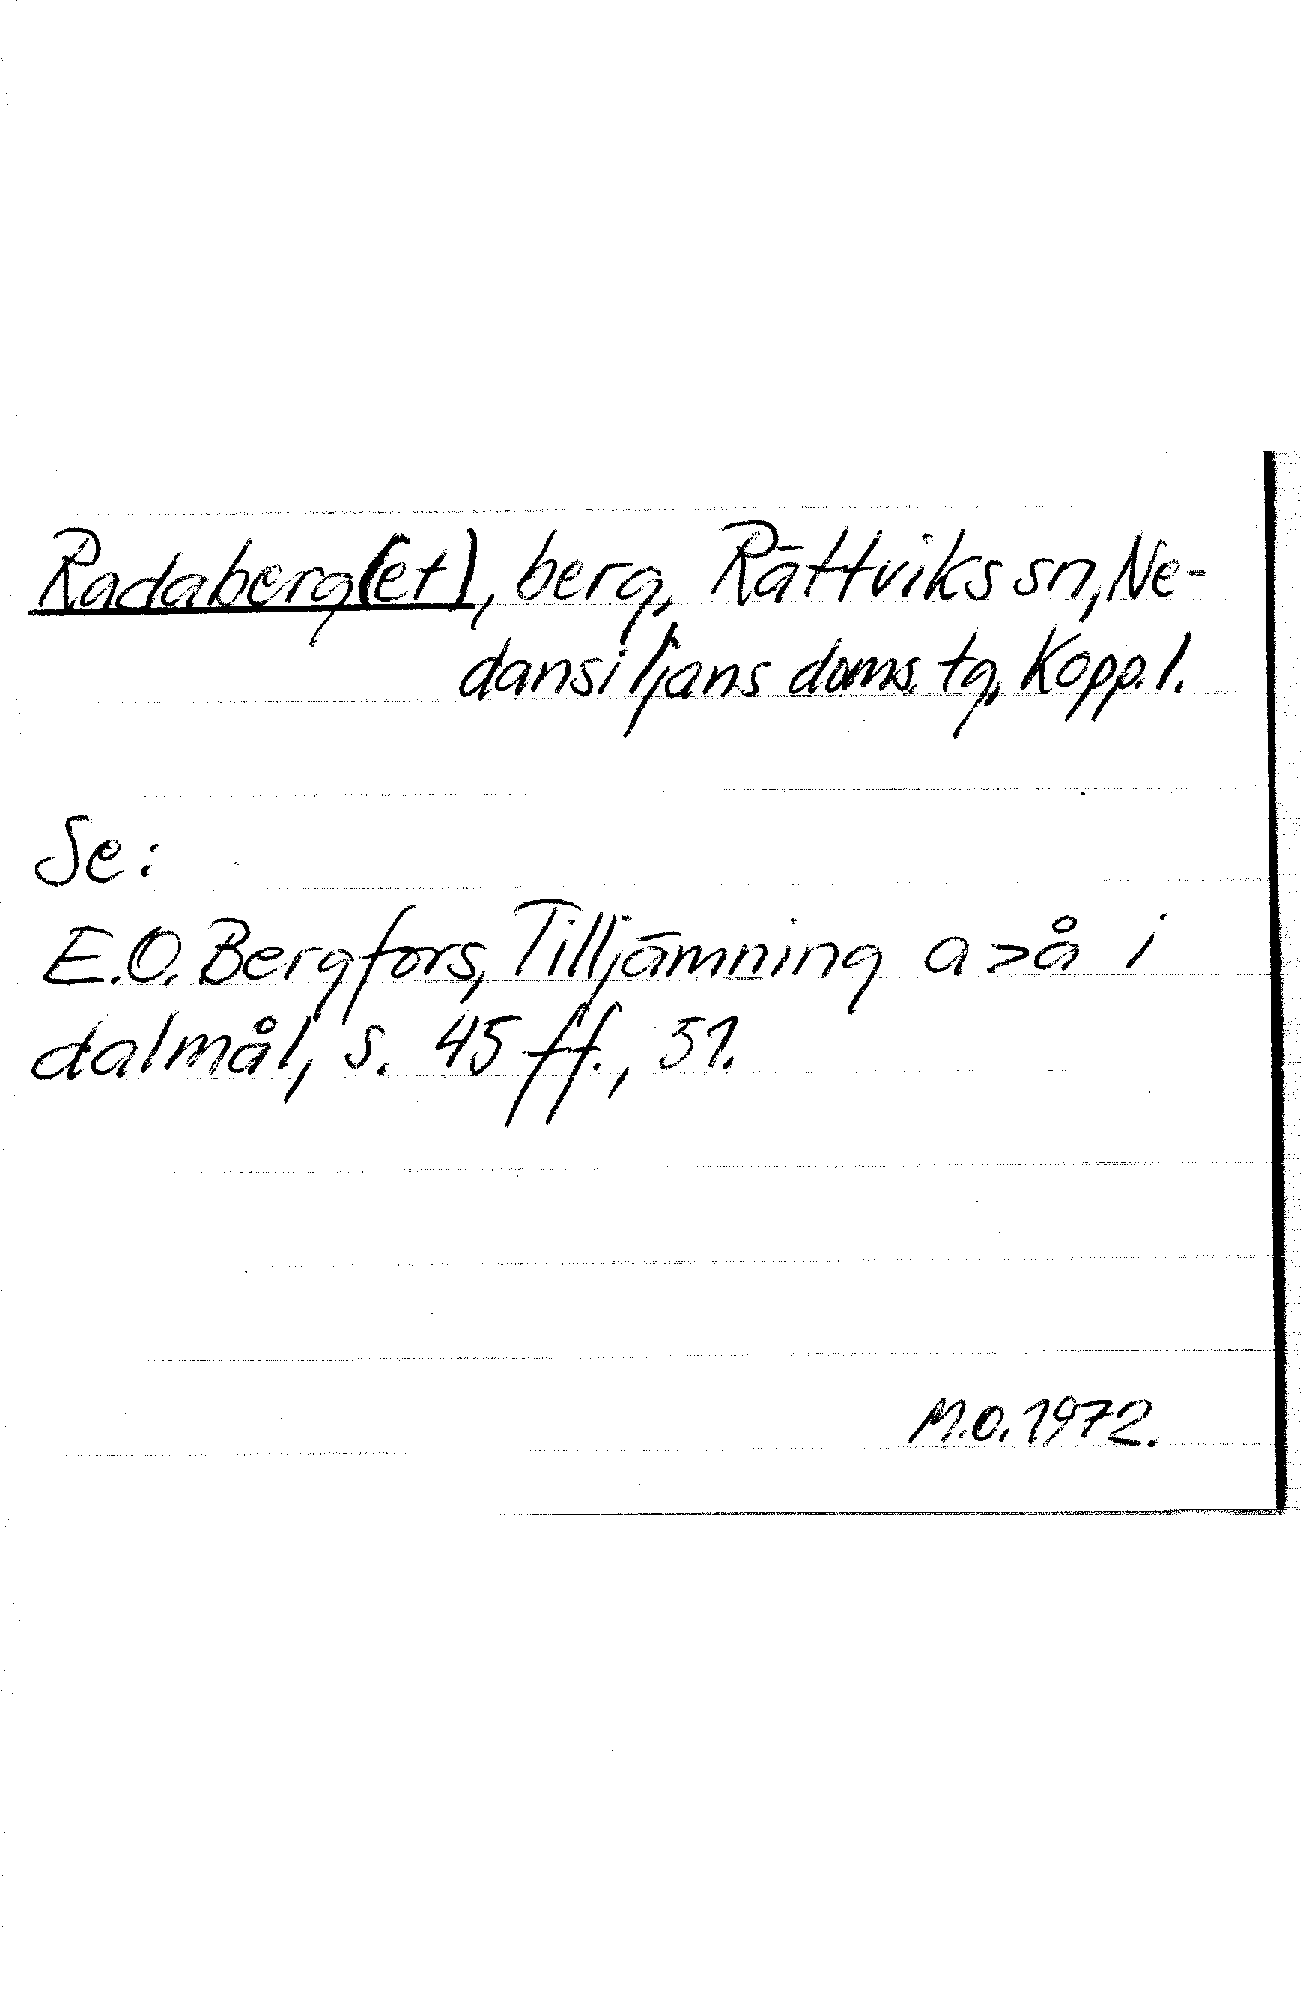 Radaberg(et), berg, Rättviks sn, Ne-
dansiljans doms. tg, Kopp. l.
Se:
E.O. Bergfors, Tilljämning a > å i
dalmål, s. 45 ff., 51.
M.O. 1972.